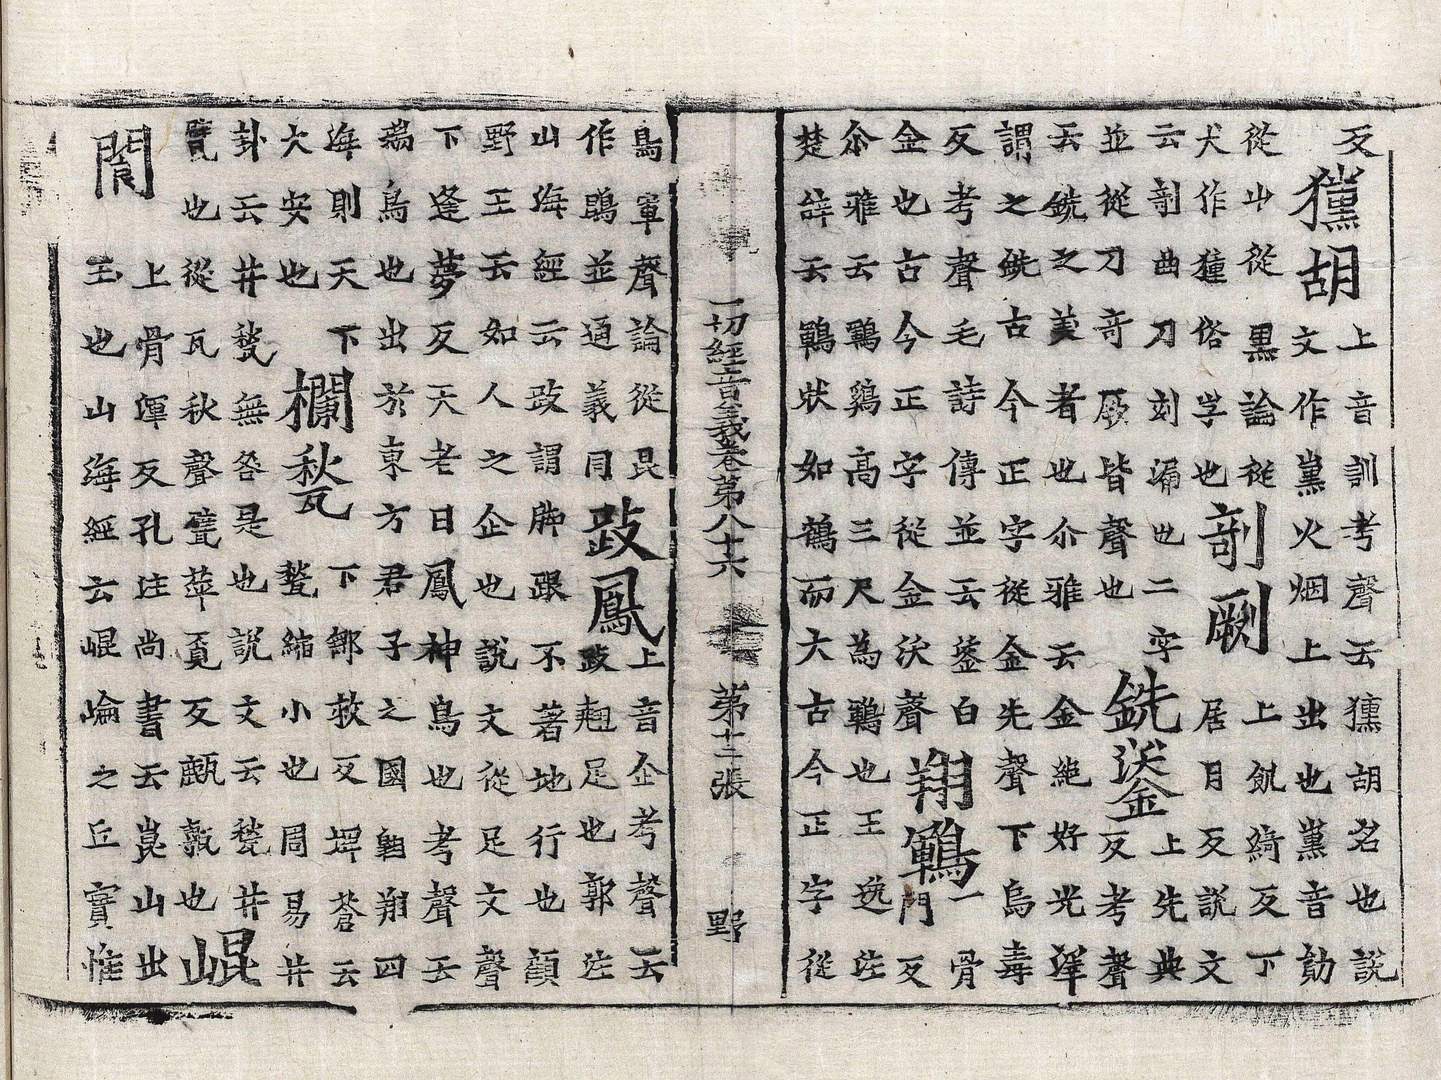 反
獯胡
上音訓考聲云獯胡名也說
文作熏火烟上出也熏音勛
從屮從黒論從
犬作㹱俗字也
剞劂
上飢綺反下
居月反說文
云剞曲刀刻漏也二字
並從刀奇厥皆聲也
銑鋈
上先典
反考聲
云銑之美者也尒雅云金絕好光澤
謂之銑古今正字從金先聲下烏毒
反考聲毛詩傳並云鋈白
金也古今正字從金沃聲
翔鶤
一骨
門反
尒雅云鶤鷄高三尺為鶤也王逸注
楚辞云鶤狀如鶴而大古今正字從
一切經音義卷第八十六 第十二張 野
鳥軍聲論從昆
作鵾並通義同
跂鳳
上音企考聲云
跂翹足也郭注
山海經云跂謂脚跟不著地行也顧
野王云如人之企也說文從足文聲
下逢夢反天老曰鳳神鳥也考聲云
瑞鳥也出於東方君子之國翱翔四
海則天下
大安也
欄甃
下鄒救反埤蒼云
甃縮小也周易井
卦云井甃無咎是也說文云甃井
甓也從瓦秋聲甓萍覓反甎也
崐
閬
上骨渾反孔注尚書云崑山出
玉也山海經云崐崘之丘實惟